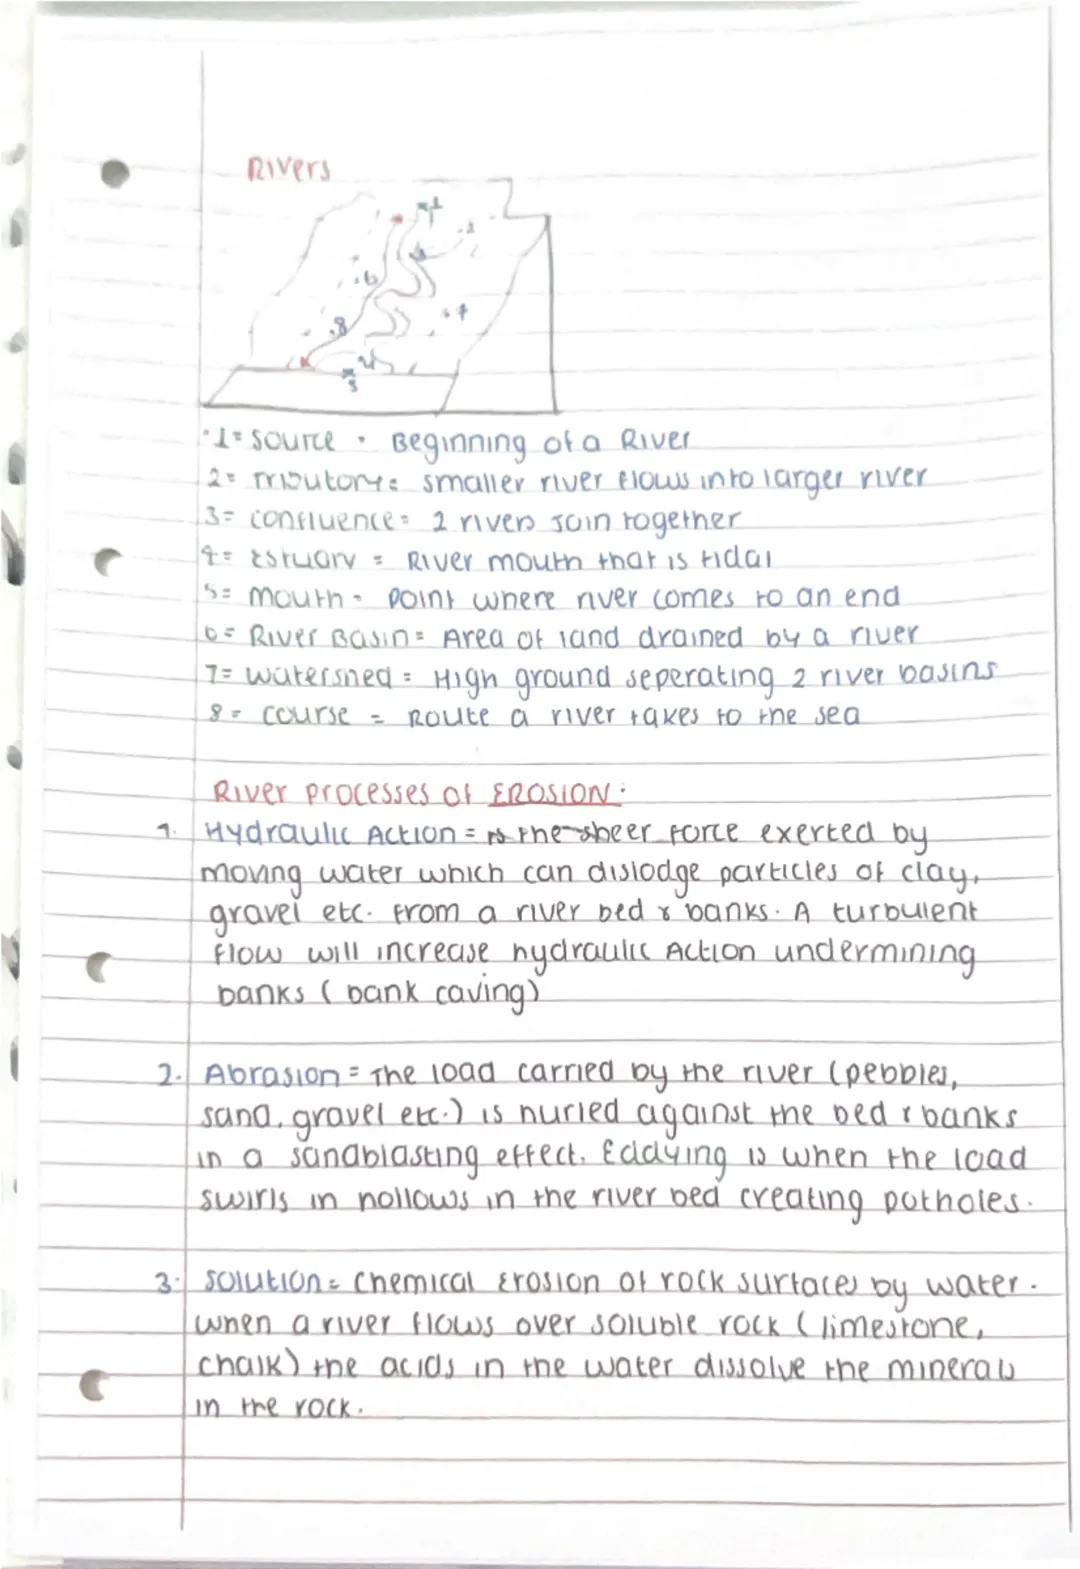 Rivers
1
2
3
6
7
8
4
5
1= Source · Beginning of a River
2= Tributory= smaller river flows into larger river
3= confluence= 2 rivers Join together
4= Estuary = River mouth that is tidal
5= mouth= point where river comes to an end
6= River Basin= Area of land drained by a river
7= watershed = High ground seperating 2 river basins
8= course = Route a river takes to the sea
River processes of EROSION:
1. Hydraulic Action = the sheer force exerted by
moving water which can dislodge particles of clay,
gravel etc. from a river bed & banks. A turbulent
flow will increase hydraulic Action undermining
banks (bank caving)
2. Abrasion = The load carried by the river (pebbles,
sand, gravel etc.) is hurled against the bed & banks
in a sandblasting effect. Eddying is when the load
swirls in hollows in the river bed creating potholes.
3. Solution= Chemical Erosion of rock surfaces by water.
when a river flows over soluble rock (limestone,
chalk) the acids in the water dissolve the minerals
in the rock.